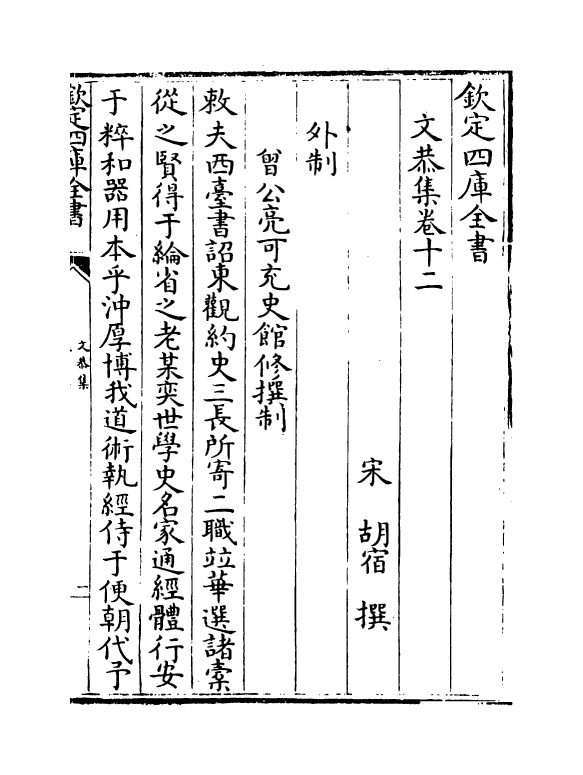 欽定四庫全書
文恭集卷十二
宋 胡宿 撰
外制
曾公亮可充史館修撰制
敕夫西臺書詔東觀約史三長所寄二職竝華選諸橐
從之賢得于綸省之老某奕世學史名家通經體行安
于粹和器用本乎沖厚博我道術執經侍于便朝代予
欽定四庫全書
文恭集